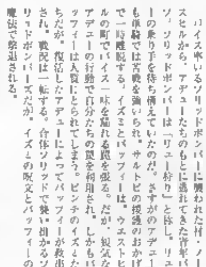 バイス率いるソリッドボンバーに襲われた村、ノー
スヒルから、アデューたちのもとに逃れてきた青年バ
ソ。ソリッドボンバーは「リュー狩り」と称し、リュ
ーの乗り手を待ち構えていたのだ。さすがのアデュー
も単騎では苦戦を強いられ、サルトビの援護のおかげ
で一時離脱する。イズミとパッフィーは、ウエストヒ
ルの町でバイス一味を陥れる罠を張る。だが、短気な
アデューの行動で自分たちの罠を利用され、しかもパ
ッフィーは人質にとられてしまう。ピンチのイズミた
ちだが、復活したアデューによってパッフィーが救出
され、戦況は一転する。合体ソリッドで襲い掛かるソ
リッドボンバーズだが、イズミの呪文とパッフィーの
魔法で撃退される。